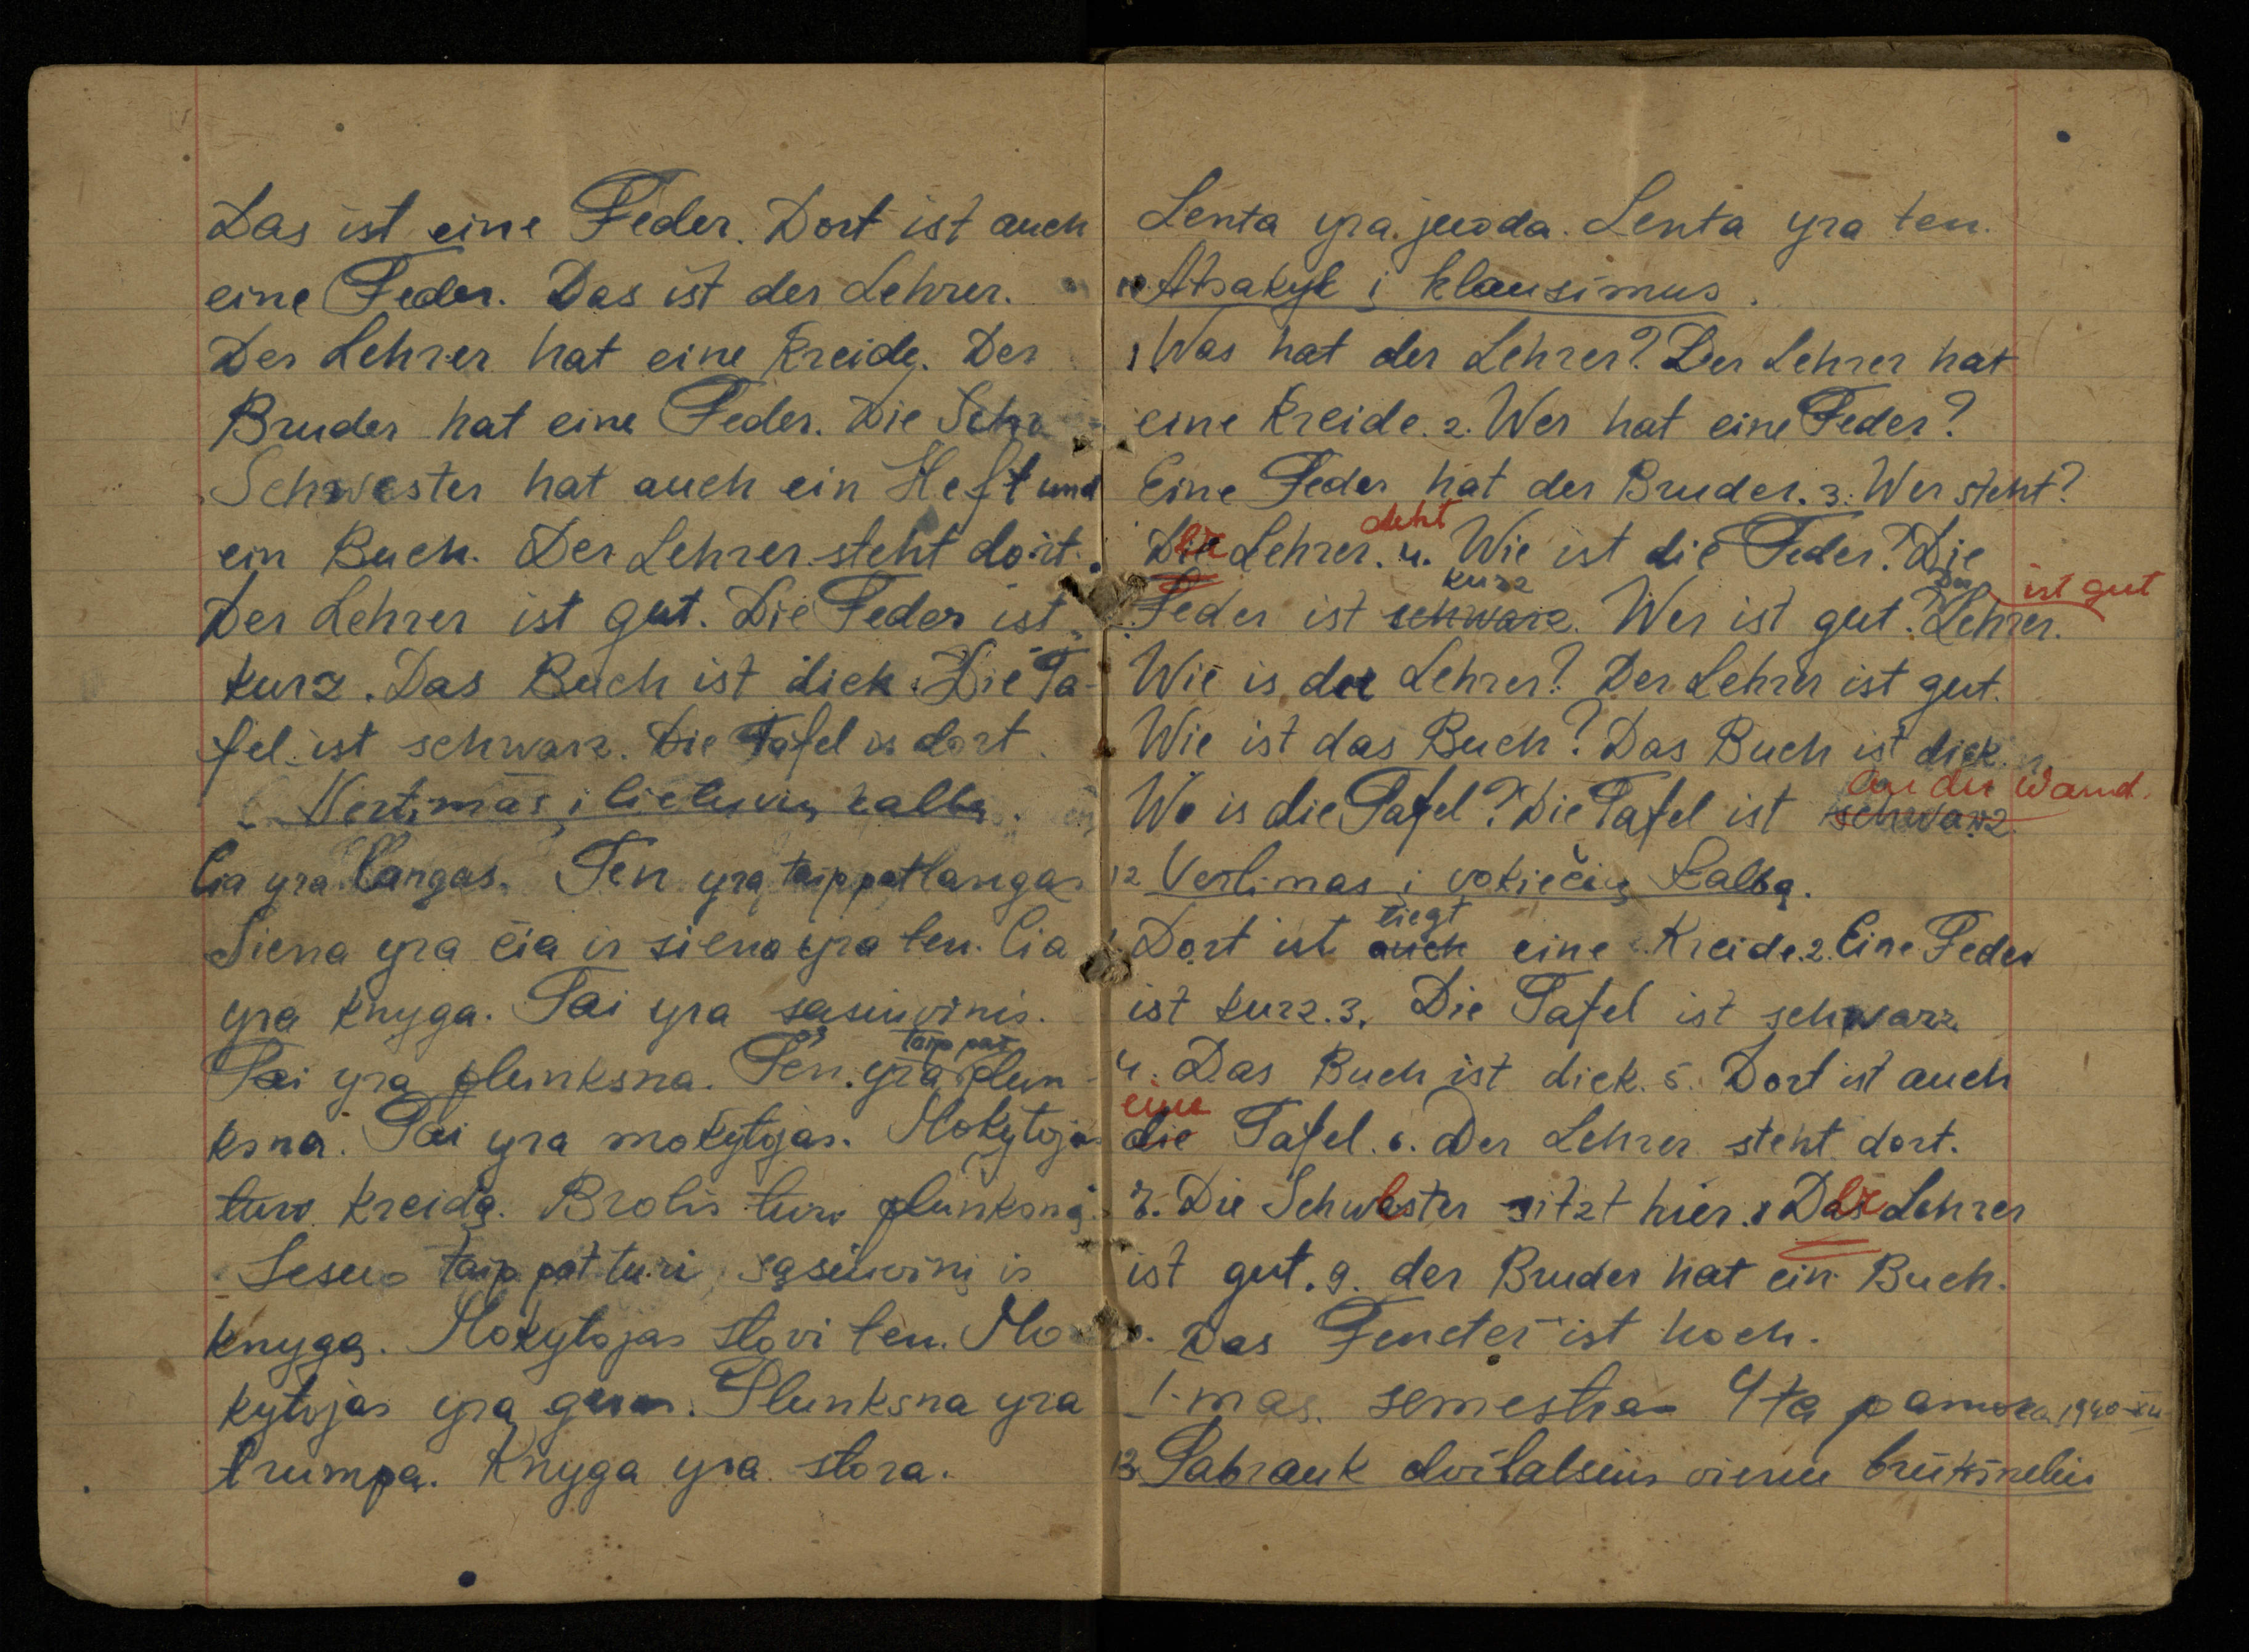 Das ist eine Feder. Dort ist auch
eine Feder. Das ist der Lehrer.
Der Lehrer hat eine Kreide. Der
Bruder hat eine Feder. Die Schw
Schwester hat auch ein Heft und
ein Buch. Der Lehrer steht dort.
Der Lehrer ist gut. Die Feder ist
kurz. Das Buch ist dick. Die Ta-
fel ist schwarz. Die Tafel is dort.
Vertimas į lietuvių kalbą.
Čia yra langas. Ten yra taip pat langas
Siena yra čia ir siena yra ten. Čia
yra knyga. Tai yra sąsiuvinis.
taip pat
Tai yra plunksna. Ten yra plun-
ksna. Tai yra mokytojas. Mokytojas
turi kreidą. Brolis turi plunksną.
Sesuo taip pat turi sąsiuvinį ir
knygą. Mokytojas stovi ten. Mo
kytojas yra geras. Plunksna yra
trumpa. Knyga yra stora.
Lenta yra juoda. Lenta yra ten.
Atsakyk į klausimus.
1 Was hat der Lehrer? Der Lehrer hat
eine Kreide. 2. Wer hat eine Feder?
Eine Feder hat der Bruder. 3. Wer steht?
steht
Der Lehrer. 4. Wie ist die Feder? Die
kurz Der ist gut
Feder ist schwarz. Wer ist gut? Lehrer.
Wie is der Lehrer? Der Lehrer ist gut.
Wie ist das Buch? Das Buch ist dick.
an der Wand.
Wo is die Tafel? Die Tafel ist schwarz.
12 Vertimas į vokiečių kalbą.
liegt
Dort ist auch eine Kreide. 2. Eine Feder
ist kurz. 3. Die Tafel ist schwarz
4. Das Buch ist dick. 5. Dort ist auch
eine
die Tafel. 6. Der Lehrer steht dort.
7. Die Schwester sitzt hier. 8 Der Lehrer
ist gut. 9. der Bruder hat ein Buch.
Das Fenster ist hoch.
I-mas semestras 4ta pamoka 1940-XII
13 Pabrauk dvibalsius vienu brūkšneliu